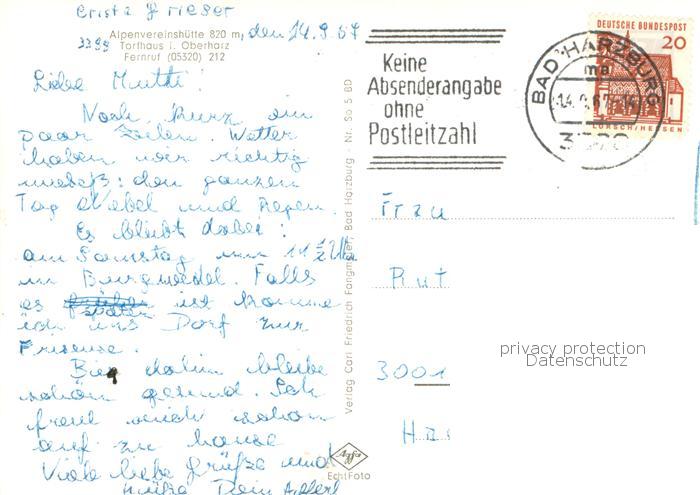 Crista Grieser
Alpenvereinshütte 820 m, den 14.9.67
3399 Torfhaus i. Oberharz
Fernruf (05320) 212
Liebe Mutti!
Noch kurz ein
paar Zeilen. Wetter
haben wir richtig
mieß: den ganzen
Tag Nebel und Regen.
Es bleibt dabei:
am Samstag um 11 1/2 Uhr
in Burgwedel. Falls
es später ist komme
ich ins Dorf zur
Friseuse.
Bis dahin bleibe
schön gesund. Ich
freue mich schon
auf zu hause
Viele liebe Grüße und
Dein
Verlag Carl Friedrich Fangmeier, Bad Harzburg · Nr. So 5 BD
Agfa
Echt Foto
Keine
Absenderangabe
ohne
Postleitzahl
BAD HARZBURG
14.9.67
DEUTSCHE BUNDESPOST
20
LORSCH/HESSEN
Frau
Rut
3001
Ha
privacy protection
Datenschutz